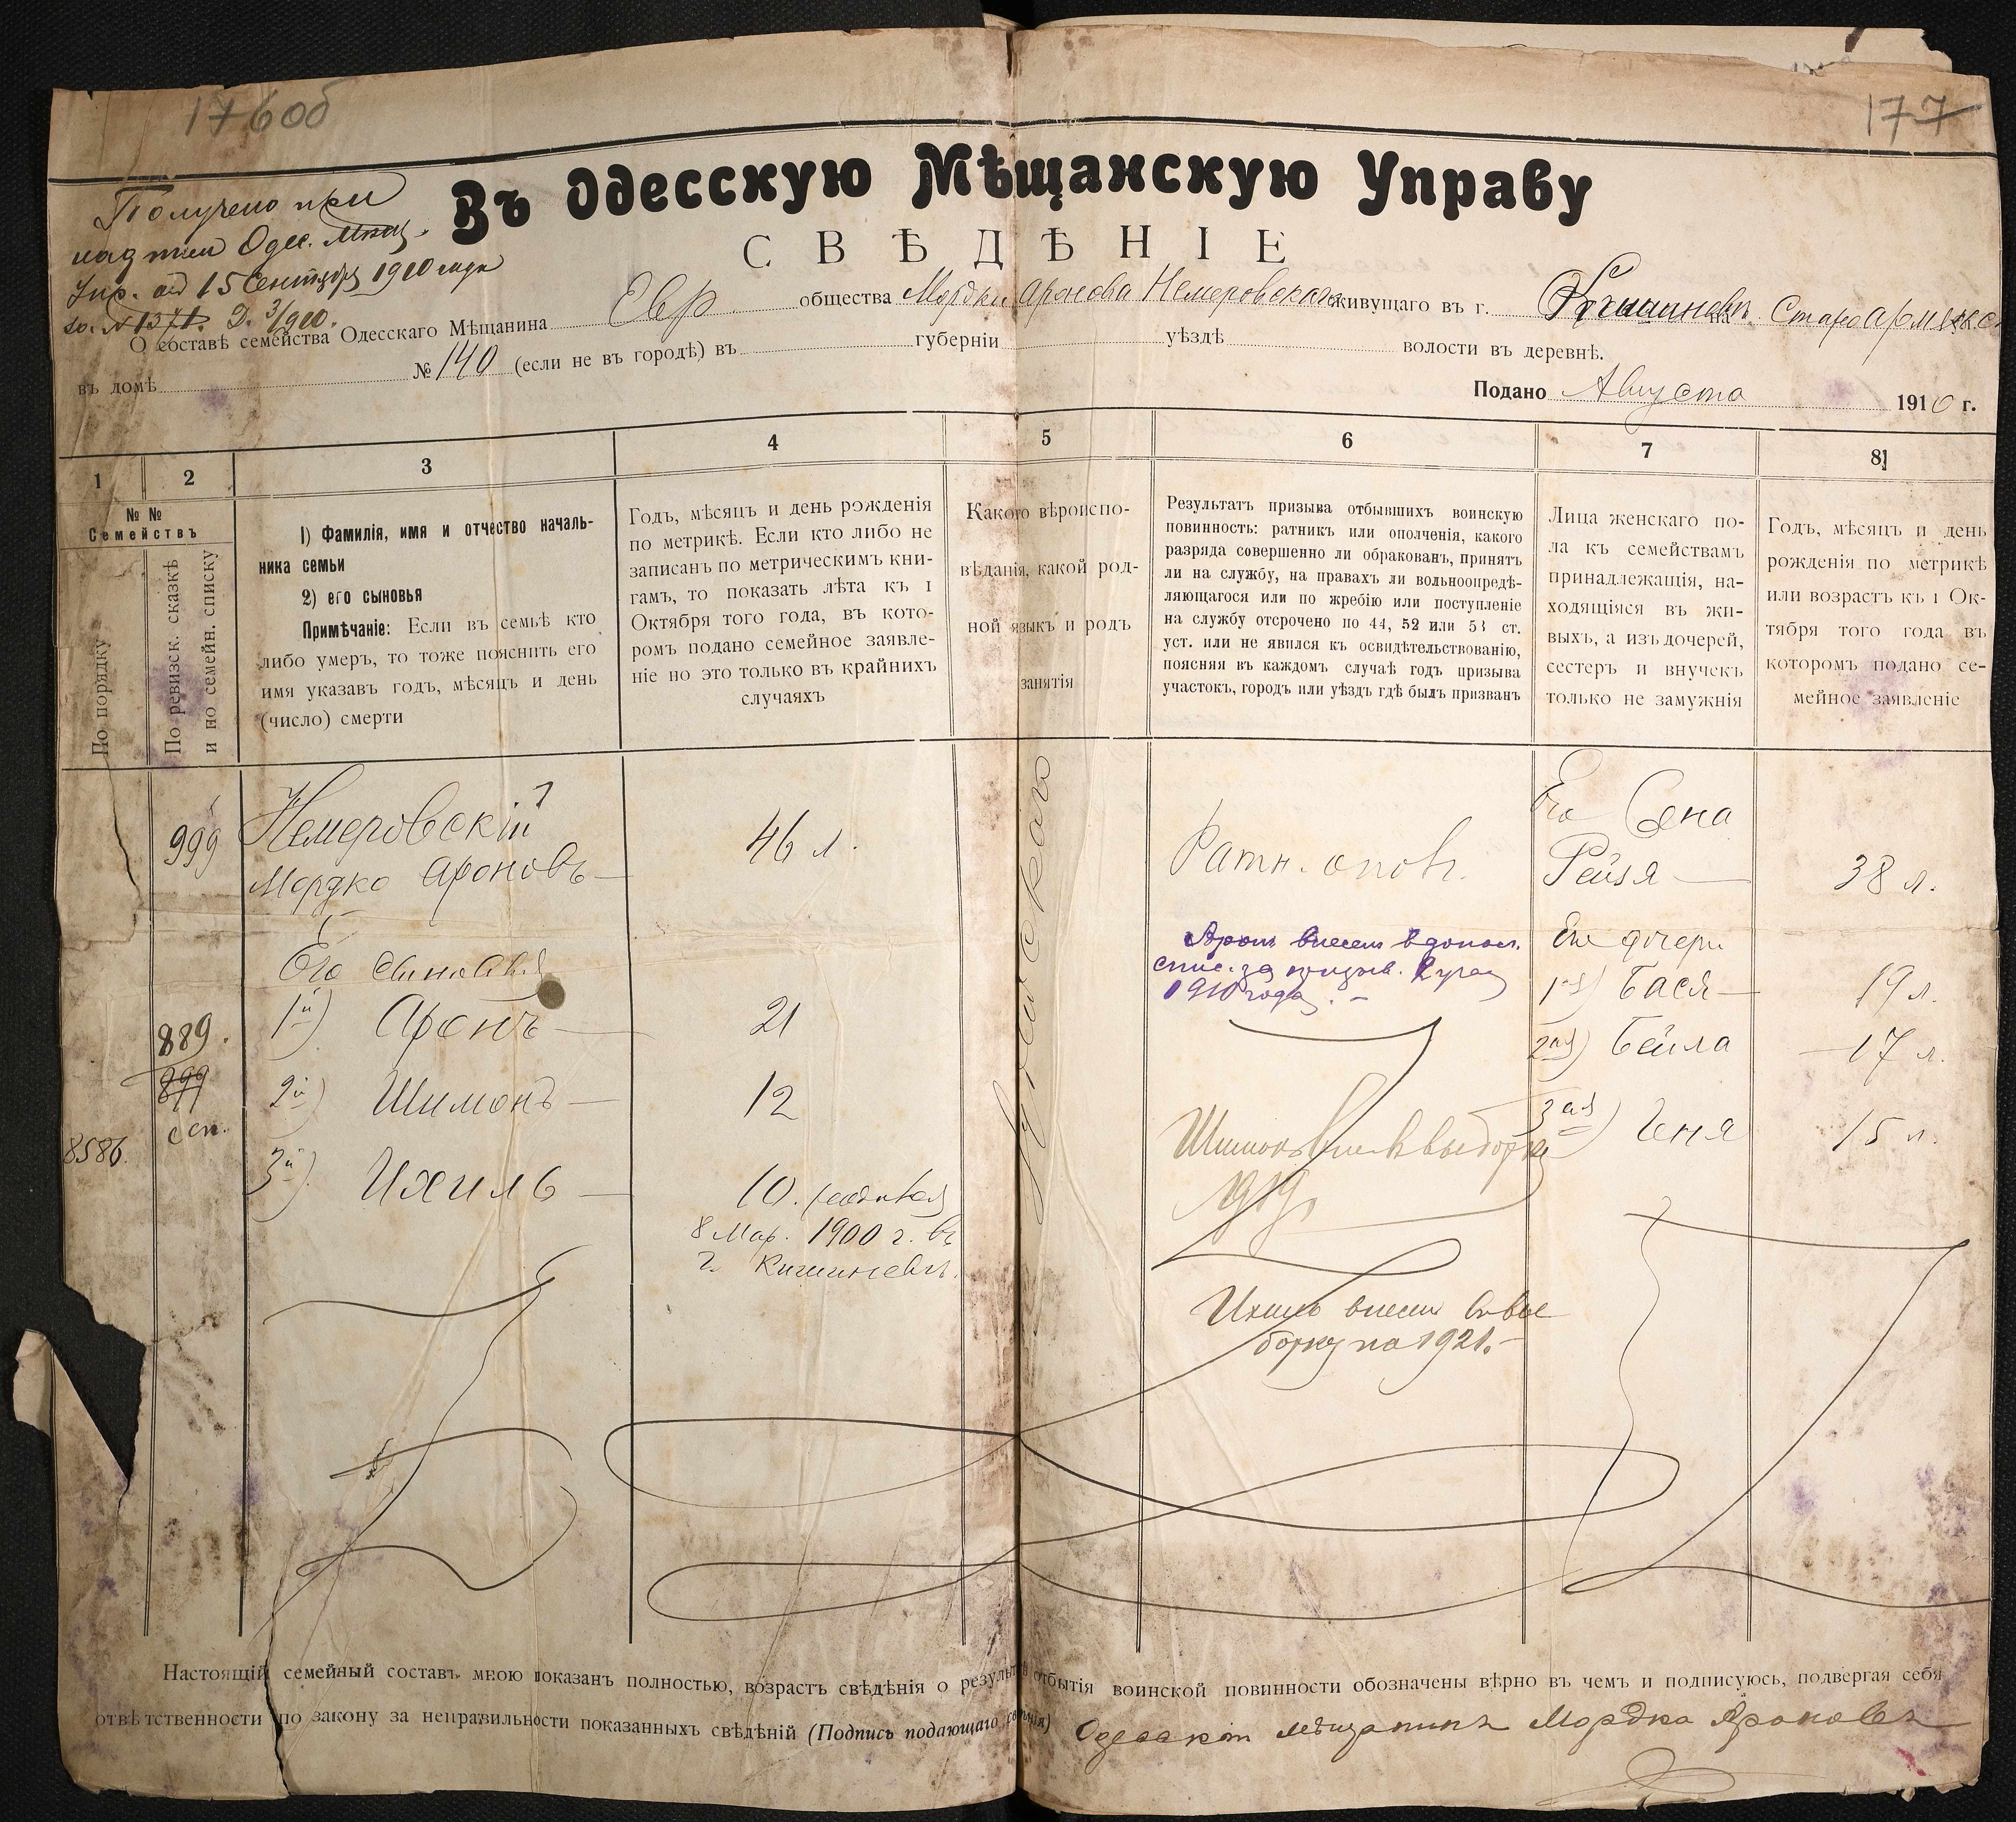 176об
177
Получено при
Одес. Мѣщ.
Упр. от 15 Сентября 1910 года
за № 1371. Д. 3/910.
Въ Одесскую Мѣщанскую Управу
СВѢДѢНІЕ
О составѣ семейства Одесскаго Мѣщанина Евр. общества Мордки Аронова Немеровскаго живущаго въ г. Кишиневѣ на Староармянск
въ домѣ № 140 (если не въ городѣ) въ губерніи уѣздѣ волости въ деревнѣ.
Подано Августа 1910 г.
1
2
3
4
5
6
7
8
№ №
Семействъ
По порядку
По ревизск. сказкѣ
и но семейн. списку
1) Фамилія, имя и отчество началь-
ника семьи
2) его сыновья
Примѣчаніе: Если въ семьѣ кто
либо умеръ, то тоже пояснить его
имя указавъ годъ, мѣсяцъ и день
(число) смерти
Годъ, мѣсяцъ и день рожденія
по метрикѣ. Если кто либо не
записанъ по метрическимъ кни-
гамъ, то показать лѣта къ 1
Октября того года, въ кото-
ромъ подано семейное заявле-
ніе но это только въ крайнихъ
случаяхъ
Какого вѣроиспо-
вѣданія, какой род-
ной языкъ и родъ
занятія
Результатъ призыва отбывшихъ воинскую
повинность: ратникъ или ополченія, какого
разряда совершенно ли обракованъ, принятъ
ли на службу, на правахъ ли вольноопредѣ-
ляющагося или по жребію или поступленіе
на службу отсрочено по 44, 52 или 53 ст.
уст. или не явился къ освидѣтельствованію,
поясняя въ каждомъ случаѣ годъ призыва
участокъ, городъ или уѣздъ гдѣ былъ призванъ
Лица женскаго по-
ла къ семействамъ
принадлежащія, на-
ходящіяся въ жи-
выхъ, а изъ дочерей,
сестеръ и внучекъ
только не замужнія
Годъ, мѣсяцъ и день
рожденія по метрикѣ
или возрастъ къ 1 Ок-
тября того года въ
которомъ подано се-
мейное заявленіе
999
Немеровскій
Мордко Ароновъ
46 л.
Ратн. опол.
Его Жена
Рейзя
38 л.
Его сыновья
1й) Аронъ
21
889.
899
сп.
8586
2й) Шимонъ
12
3й) Ихиль
10. родился
8 Мар. 1900 г. въ
г. Кишиневѣ.
Іудейскаго
Аронъ внесен в допол.
спис. за призыв. 2 уч.
1910 года. -
Шимонъ внес. в выборку
1919
Ихиль внесен в вы
борку на 1921. -
Его дочери
1ая) Бася
19 л.
2ая) Бейла
17 л.
3ая) Геня
15 л.
Настоящій семейный составъ мною показанъ полностью, возрастъ свѣдѣнія о результатѣ отбытія воинской повинности обозначены вѣрно въ чемъ и подписуюсь, подвергая себя
отвѣтственности по закону за неправильности показанныхъ свѣдѣній (Подпись подающаго свѣдѣнія) Одесскій мѣщанинъ Мордко Ароновъ